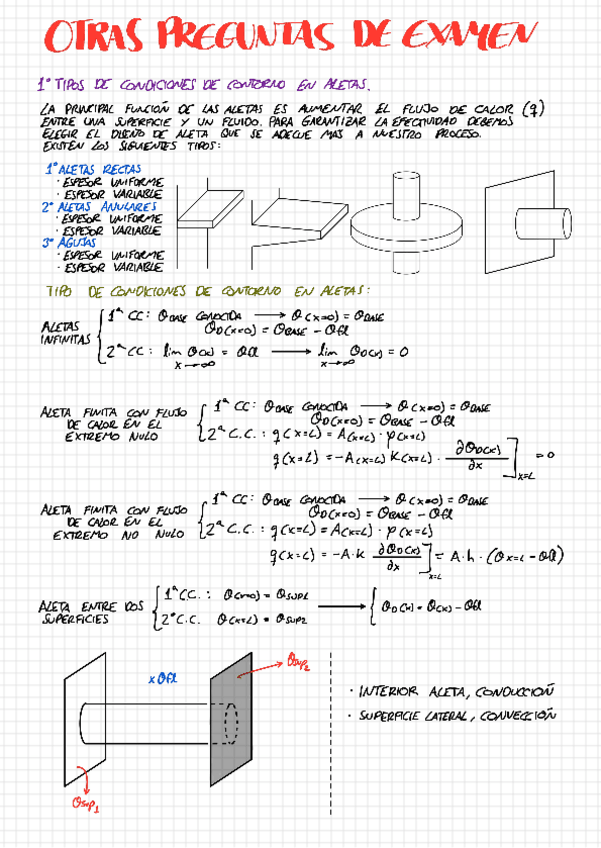 OTRAS PREGUNTAS DE EXAMEN
1º TIPOS DE CONDICIONES DE CONTORNO EN ALETAS.
LA PRINCIPAL FUNCIÓN DE LAS ALETAS ES AUMENTAR EL FLUJO DE CALOR (q)
ENTRE UNA SUPERFICIE Y UN FLUIDO. PARA GARANTIZAR LA EFECTIVIDAD DEBEMOS
ELEGIR EL DISEÑO DE ALETA QUE SE ADECUE MAS A NUESTRO PROCESO.
EXISTEN LOS SIGUIENTES TIPOS:
1º ALETAS RECTAS
· ESPESOR UNIFORME
· ESPESOR VARIABLE
2º ALETAS ANULARES
· ESPESOR UNIFORME
· ESPESOR VARIABLE
3º AGUJAS
· ESPESOR UNIFORME
· ESPESOR VARIABLE
TIPO DE CONDICIONES DE CONTORNO EN ALETAS:
ALETAS INFINITAS
1ª CC: θBASE CONOCIDA → θ(x=0) = θBASE
θD(x=0) = θBASE - θfl
2ª CC: lim θ(x) = θfl → lim θD(x) = 0
x→∞ x→∞
ALETA FINITA CON FLUJO
DE CALOR EN EL
EXTREMO NULO
1ª CC: θBASE CONOCIDA → θ(x=0) = θBASE
θD(x=0) = θBASE - θfl
2ª C.C.: q(x=L) = A(x=L) · φ(x=L)
q(x=L) = -A(x=L) K(x=L) · ∂θD(x)/∂x ]x=L = 0
ALETA FINITA CON FLUJO
DE CALOR EN EL
EXTREMO NO NULO
1ª CC: θBASE CONOCIDA → θ(x=0) = θBASE
θD(x=0) = θBASE - θfl
2ª C.C.: q(x=L) = A(x=L) · φ(x=L)
q(x=L) = -A·k ∂θD(x)/∂x ]x=L = A·h·(θx=L - θfl)
ALETA ENTRE DOS
SUPERFICIES
1ª CC.: θ(x=0) = θSUP1
2ª C.C. θ(x=L) = θSUP2
→ { θD(x) = θ(x) - θfl
x θfl
θsup2
θsup1
· INTERIOR ALETA, CONDUCCIÓN
· SUPERFICIE LATERAL, CONVECCIÓN